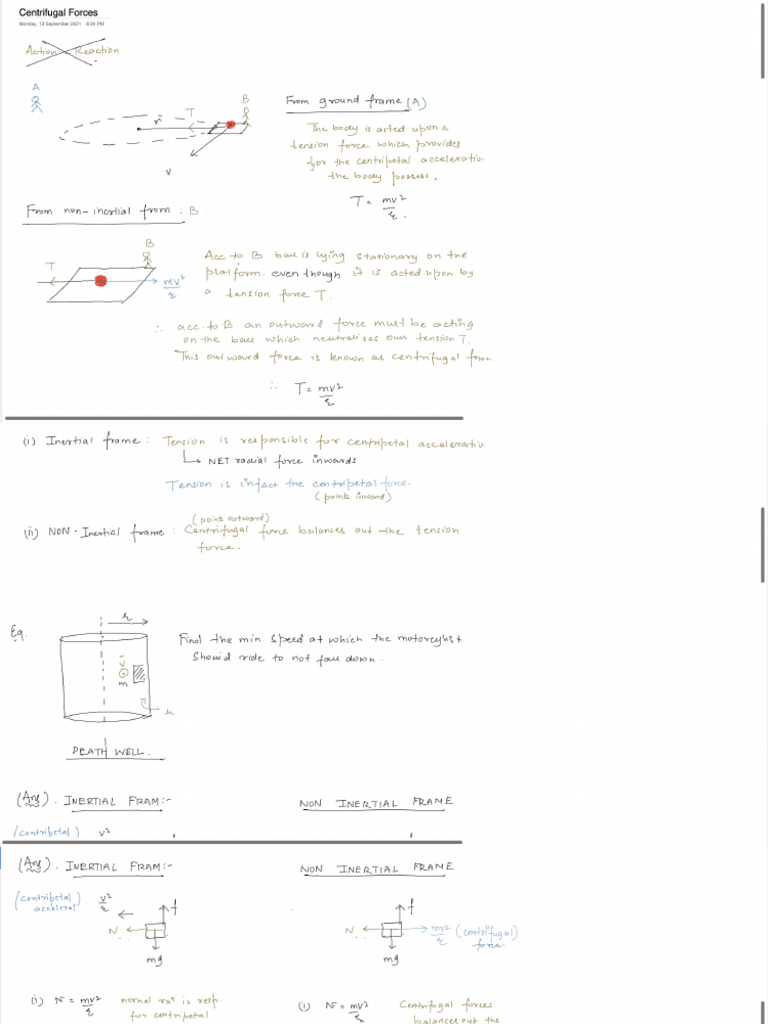 Centrifugal Forces
Monday, 13 September 2021 8:24 PM
Action Reaction
A
B
T
r
v
From ground frame (A)
The body is acted upon a
tension force which provides
for the centripetal acceleratio.
the body possess.
T = mv²/r.
From non-inertial from : B
B
T
mv²/r
Acc to B ball is lying stationary on the
platform. even though it is acted upon by
a tension force T.
∴ acc. to B an outward force must be acting
on the ball which neutralises our tension T.
This outward force is known as centrifugal force
∴ T = mv²/r
(i) Inertial frame : Tension is responsible for centripetal acceleratio.
↳ NET radial force inwards
Tension is infact the centripetal force.
(points inward)
(points outward)
(ii) NON-Inertial frame : Centrifugal force balances out the tension
force.
Eg.
r
v
m
u
Find the min speed at which the motorcylist
should ride to not fall down.
DEATH WELL.
(Ans). INERTIAL FRAM:-
NON INERTIAL FRAME
(centripetal) v²
(Ans). INERTIAL FRAM:-
NON INERTIAL FRAME
(centripetal
accelerat)
v²/r
f
N
mg
f
N
mv²/r (centrifugal
force
mg
(i) N = mv²/r normal rxⁿ is resp.
for centripetal
(i) N = mv²/r Centrifugal forces
balances out the